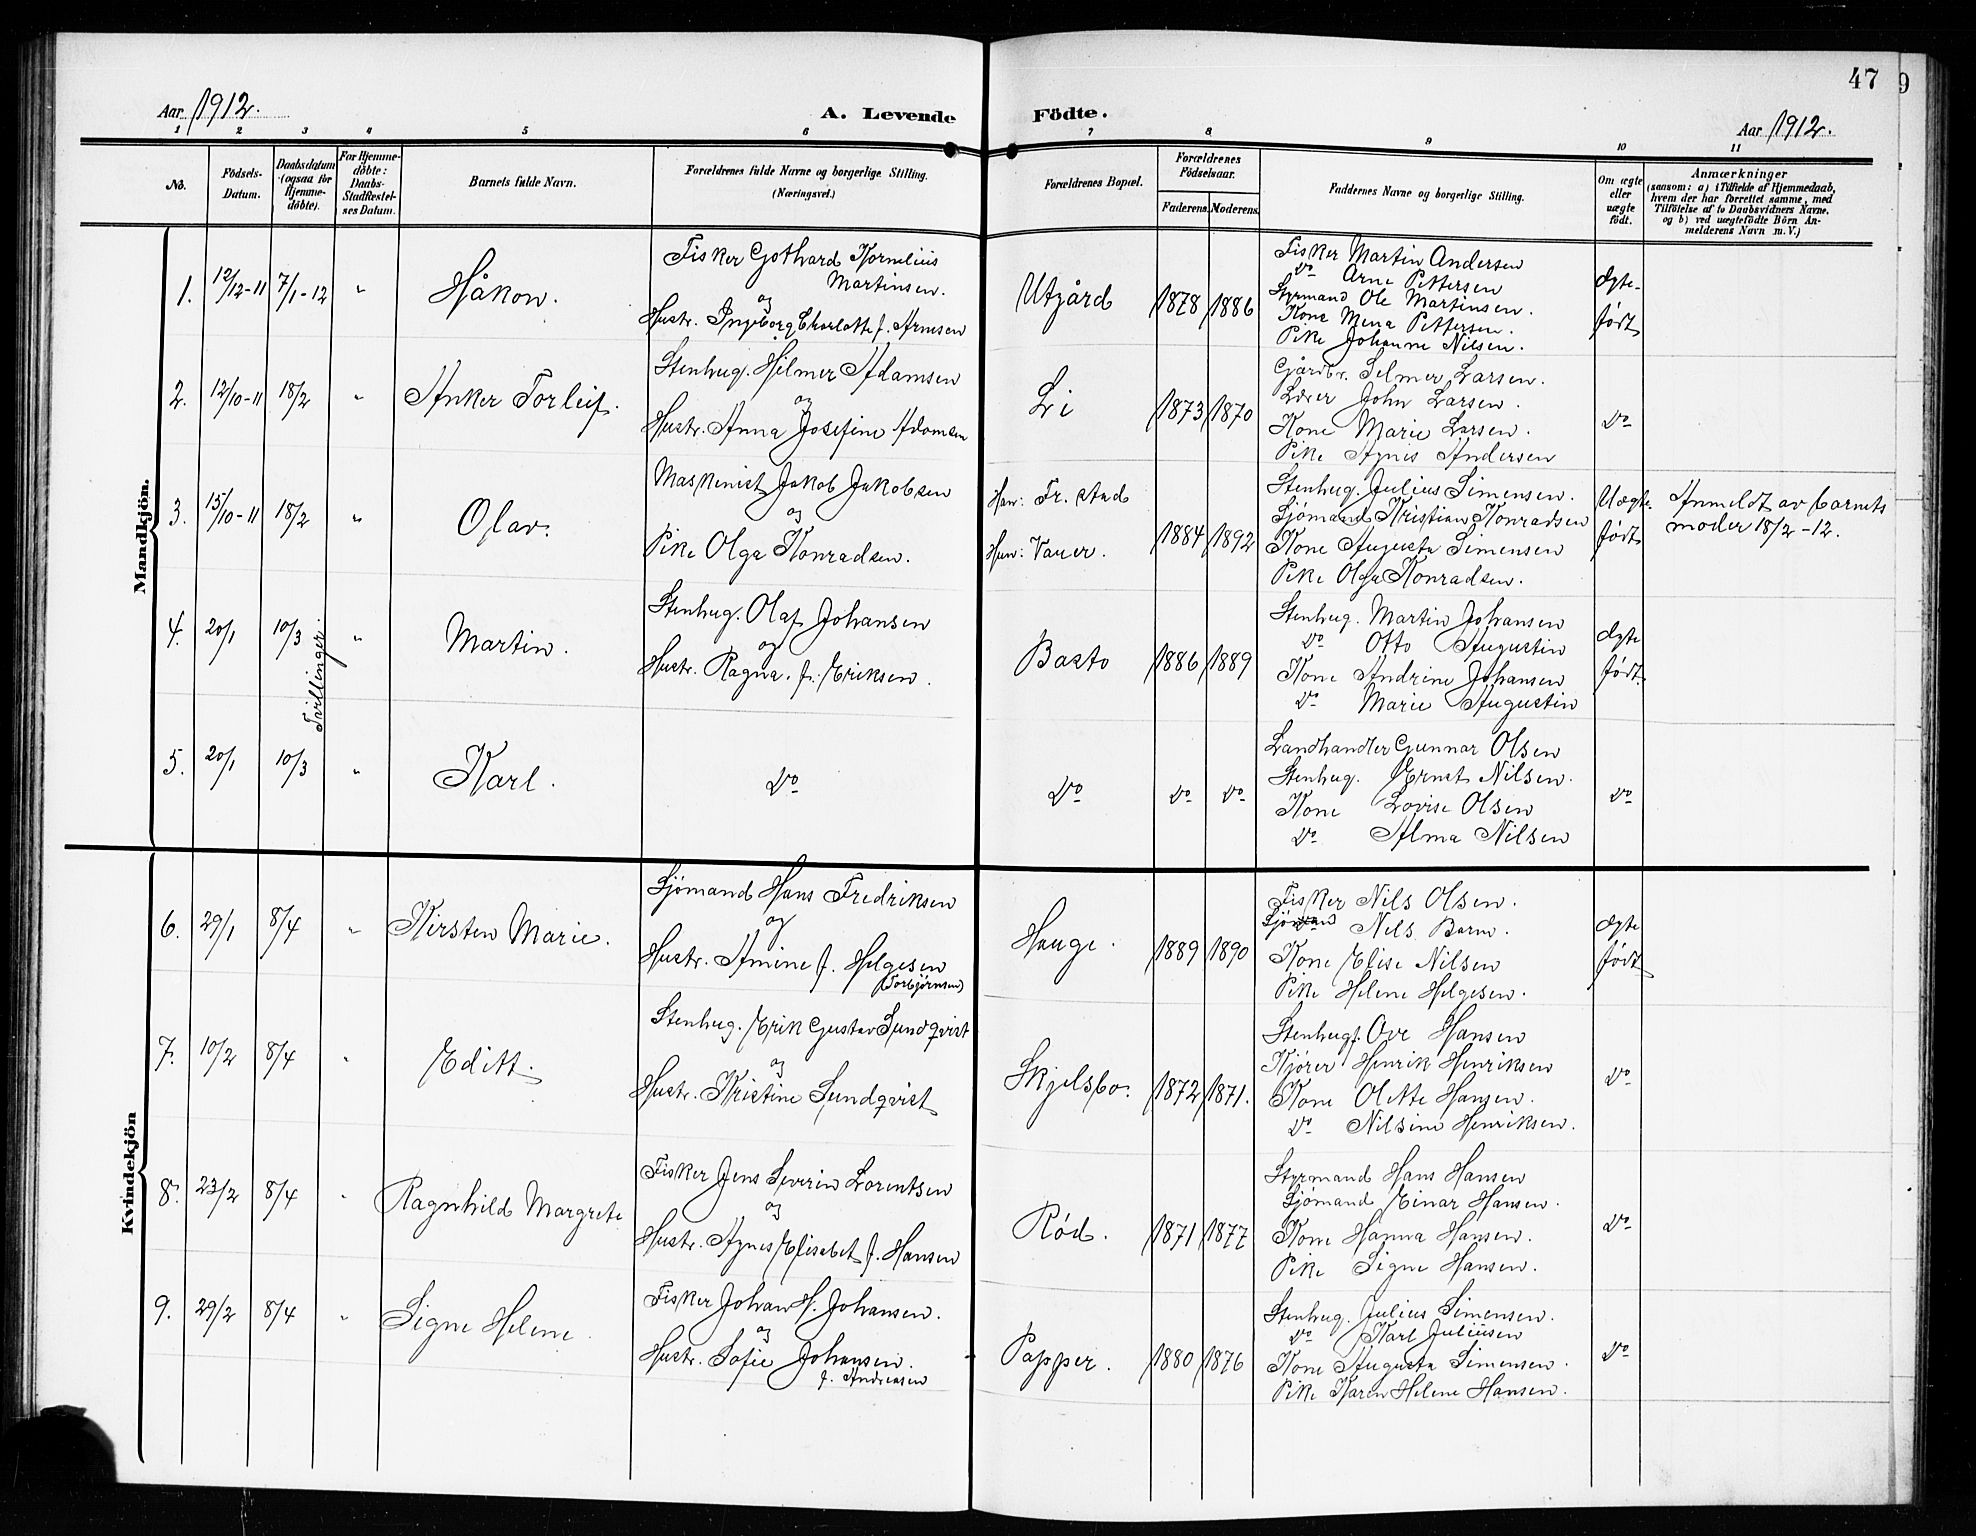 47
9
Aar 1912.
A. Levende Födte.
Aar 1912.
1 2 3 4 5 6 7 8 9 10 11
No.
Födsels-
Datum.
Daabsdatum
(ogsaa for
Hjemme-
döbte).
For Hjemme-
döbte:
Daabs-
Stadfæstel-
ses Datum.
Barnets fulde Navn.
Forældrenes fulde Navne og borgerlige Stilling.
(Næringsvei.)
Forældrenes Bopæl.
Forældrenes
Födselsaar.
Faderens. Moderens.
Faddernes Navne og borgerlige Stilling.
Om ægte
eller
uægte
födt.
Anmærkninger
(saasom: a) i Tilfælde af Hjemmedaab,
hvem der har forrettet samme, med
Tilföielse af to Daabsvidners Navne,
og b) ved uægtefödte Börn An-
melderens Navn m.V.)
Mandkjön.
1. 12/12-11 7/1-12 " Håkon.
Fisker Gothard Kornelius
Martinsen.
og
Hustr. Ingeborg Charlotte f. Arnesen
Utgård 1878 1886
Fisker Martin Andersen
Do Arne Pettersen
Styrmand Ole Martinsen.
Kone Mena Pettersen.
Pike Johanne Nilsen.
Ægte-
født
2. 12/10-11 18/2 " Anker Torleif.
Stenhug. Hilmer Adamsen
og
Hustr. Anna Josefine Adamsen
Li 1873 1870
Gårdbr. Selmer Larsen.
Lærer John Larsen.
Kone Marie Larsen.
Pike Agnes Andersen
Do
3. 15/10-11 18/2 " Olav.
Maskinist Jakob Jakobsen
og
Pike Olga Konradsen.
Han: Fr. stad
Hun: Vauer.
1884 1892
Stenhug. Julius Simensen.
Sjømand Kristian Konradsen
Kone Augusta Simensen
Pike Olga Konradsen.
Uægte
født
Anmeldt av barnets
moder 18/2-12.
4. 20/1 10/3 " Martin.
Tvillinger.
Stenhug. Olaf Johansen
og
Hustr. Ragna. f. Eriksen.
Basto 1886 1889
Stenhug. Martin Johansen
Do Otto Augustin
Kone Andrine Johansen
Do Marie Augustin
Ægte
født.
5. 20/1 10/3 " Karl.
Do
Do Do Do
Landhandler Gunnar Olsen
Stenhug. Ernst Nilsen.
Kone Lovise Olsen
Do Alma Nilsen
Do
Kvindekjön
6. 29/1 8/4 " Kirsten Marie.
Sjømand Hans Fredriksen
og
Hustr. Amine f. Helgesen
(Torbjørnsen)
Hauge. 1889 1890
Fisker Nils Olsen.
Nils Barm.
Kone Elise Nilsen
Pike Helene Helgesen.
Ægte
født
7. 10/2 8/4 " Editt.
Stenhug. Erik Gustav Sundqvist
og
Hustr. Kristine Sundqvist
Skjelsbo. 1872 1871.
Stenhug. Ove Hansen
Kjører Henrik Henriksen
Kone Olette Hansen.
Do Nilsine Henriksen.
Do
8. 23/2 8/4 " Ragnhild Margrete
Fisker Jens Severin Lorentsen
og
Hustr. Agnes Elisabet f. Hansen
Rød. 1871 1877
Styrmand Hans Hansen
Sjømand Einar Hansen.
Kone Hanna Hansen.
Pike Signe Hansen.
Do
9. 29/2 8/4 " Signe Helene.
Fisker Johan H. Johansen.
og
Hustr. Sofie Johansen.
f. Andreasen
Papper. 1880 1876
Stenhug. Julius Simensen.
Do Karl Juliusen
Kone Augusta Simensen.
Pike Karen Helene Hansen.
Do